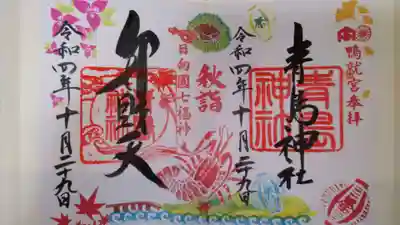 鴨就宮奉拝
青島神社
令和四年十月二十九日
秋詣
日向国七福神
弁財天
令和四年十月二十九日
青島
神社